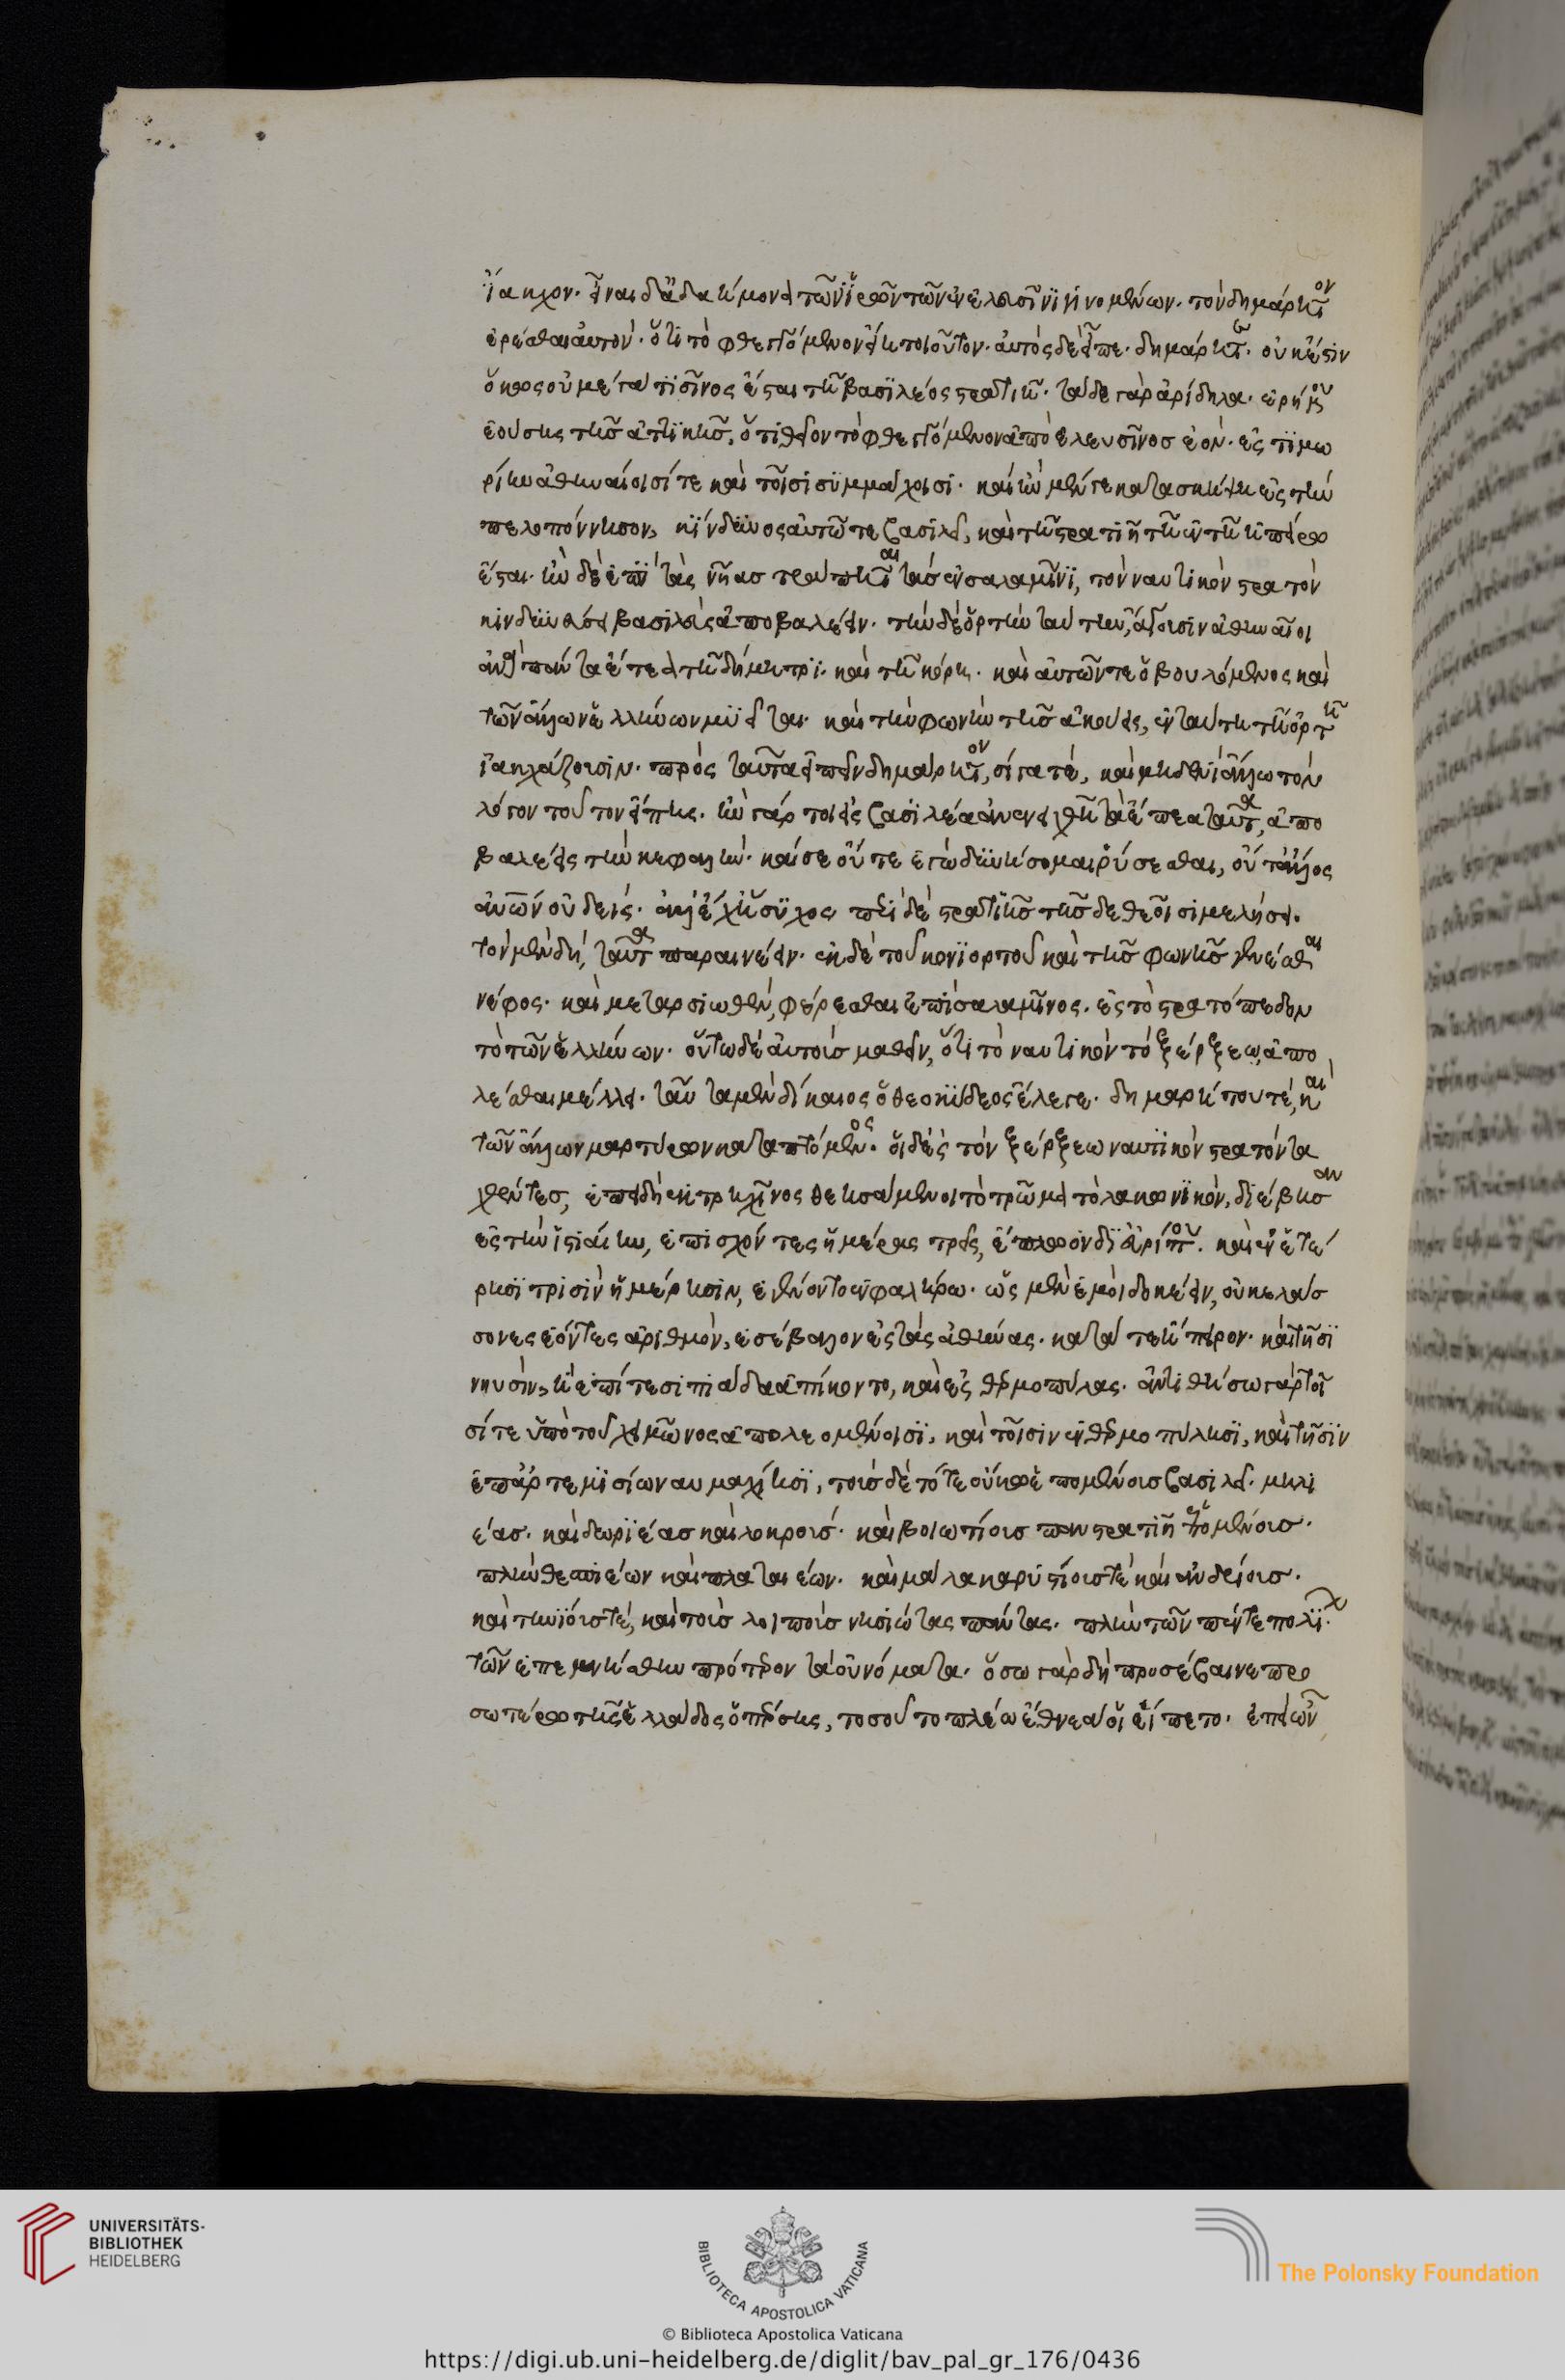 ἴακχον. εἶναι δ' ἀδαήμονα τῶν ἱρῶν τῶν ἐν ἐλευσῖνι γινομένων. τὸν δημάρητον
ἐρέσθαι αὐτόν. ὅτι τὸ φθεγγόμενον εἴη τοιοῦτον. αὐτὸς δὲ εἶπε. δημάρητε. οὐκ ἔστιν
ὅκως οὐ μέγα τι σῖνος ἔσται τῇ βασιλέος στρατιῇ. τάδε γὰρ ἀρίδηλα. ἐρήμου
ἐούσης τῆς ἀττικῆς, ὅτι θεῖον τὸ φθεγγόμενον ἀπὸ ἐλευσῖνος ἰὸν. ἐς τιμω
ρίην ἀθηναίοισί τε καὶ τοῖσι συμμάχοισι. καὶ ἢν μέν γε κατασκήψῃ ἐς τὴν
πελοπόννησον, κίνδυνος αὐτῷ τε βασιλεῖ, καὶ τῇ στρατιῇ τῇ ἐν τῇ ἠπείρῳ
ἔσται. ἢν δὲ ἐπὶ τὰς νῆας τράπηται τὰς ἐν σαλαμῖνι, τὸν ναυτικὸν στρατὸν
κινδυνεύσει βασιλεὺς ἀποβαλέειν. τὴν δὲ ὁρτὴν ταύτην, ἄγουσιν ἀθηναῖοι
ἀνὰ πάντα ἔτεα τῇ δήμητρι. καὶ τῇ κόρῃ. καὶ αὐτῶν τε ὁ βουλόμενος καὶ
τῶν ἄλλων ἑλλήνων μυεῖται. καὶ τὴν φωνὴν τῆς ἀκούεις, ἐν ταύτῃ τῇ ὁρτῇ
ἰακχάζουσιν. πρὸς ταῦτα εἰπεῖν δημάρητον, σίγα τέ, καὶ μηδενὶ ἄλλῳ τὸν
λόγον τοῦτον εἴπῃς. ἢν γάρ τοι ἐς βασιλέα ἀνενειχθῇ τὰ ἔπεα ταῦτα, ἀπο
βαλέεις τὴν κεφαλήν. καί σε οὔτε ἐγὼ δυνήσομαι ῥύσεσθαι, οὔτ' ἄλλος
ἀνθρώπων οὐδείς. ἀλλ' ἔχ' ἥσυχος περὶ δὲ στρατιῆς τῆσδε θεοῖσι μελήσει.
τὸν μὲν δή, ταῦτα παραινέειν. ἐκ δὲ τοῦ κονιορτοῦ καὶ τῆς φωνῆς γενέσθαι
νέφος. καὶ μεταρσιωθέν, φέρεσθαι ἐπὶ σαλαμῖνος. ἐς τὸ στρατόπεδον
τὸ τῶν ἑλλήνων. οὕτω δὲ αὐτοὺς μαθεῖν, ὅτι τὸ ναυτικὸν τὸ ξέρξεω, ἀπο
λέσθαι μέλλει. ταῦτα μὲν δίκαιος ὁ θεοκύδεος ἔλεγε. δημαρήτου τέ, καὶ
τῶν ἄλλων μαρτύρων καταπτόμενος. οἱ δὲ ἐς τὸν ξέρξεω ναυτικὸν στρατὸν τα
χθέντες, ἐπειδὴ ἐκ τρηχῖνος θεησάμενοι τὸ τρῶμα τὸ λακωνικὸν, διέβησαν
ἐς τὴν ἱστιαίην, ἐπισχόντες ἡμέρας τρεῖς, ἔπλωον δι' εὐρίπου. καὶ ἐν ἑτέ
ρῃσι τρισὶν ἡμέρῃσιν, ἐγένοντο ἐν φαλήρῳ. ὡς μὲν ἐμοὶ δοκέειν, οὐκ ἐλάσ
σονες ἐόντες ἀριθμὸν, ἐσέβαλον ἐς τὰς ἀθήνας. κατά τε ἤπειρον. καὶ τῇσι
νηυσὶν, ἢ ἐπί τε σηπιάδα ἀπίκοντο, καὶ ἐς θερμοπύλας. ἀντιθήσω γὰρ τοῖ
σί τε ὑπὸ τοῦ χειμῶνος ἀπολεομένοισι, καὶ τοῖσιν ἐν θερμοπύλῃσι, καὶ τῇσιν
ἐπ' ἀρτεμισίῳ ναυμαχίῃσι, τοὺς δὲ τότε οὔκω ἑπομένους βασιλεῖ. μηλι
έας. καὶ δωριέας καὶ λοκρούς. καὶ βοιωτίους πανστρατιῇ ἑπομένους.
πλὴν θεσπιέων καὶ πλαταιέων. καὶ μάλα καρυστίους τὲ καὶ ἀνδρίους.
καὶ τηνίους τέ, καὶ τοὺς λοιποὺς νησιώτας πάντας. πλὴν τῶν πέντε πολίων.
τῶν ἐπεμνήσθην πρότερον τὰ οὐνόματα. ὅσῳ γὰρ δὴ προσέβαινε προ
σωτέρω τῆς ἑλλάδος ὁ πέρσης, τοσούτῳ πλέω ἔθνεά οἱ εἵπετο. ἐπεὶ ὦν
UNIVERSITÄTS-
BIBLIOTHEK
HEIDELBERG
BIBLIOTECA APOSTOLICA VATICANA
The Polonsky Foundation
© Biblioteca Apostolica Vaticana
https://digi.ub.uni-heidelberg.de/diglit/bav_pal_gr_176/0436